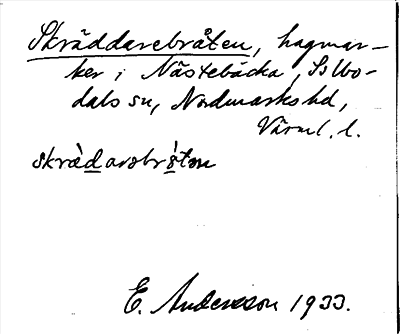 Skräddarebråten, hagmar-
ker i Nästebäcka, Silbo-
dals sn, Nordmarks hd,
Värml. l.
skrädarobråton
E. Andersson 1933.